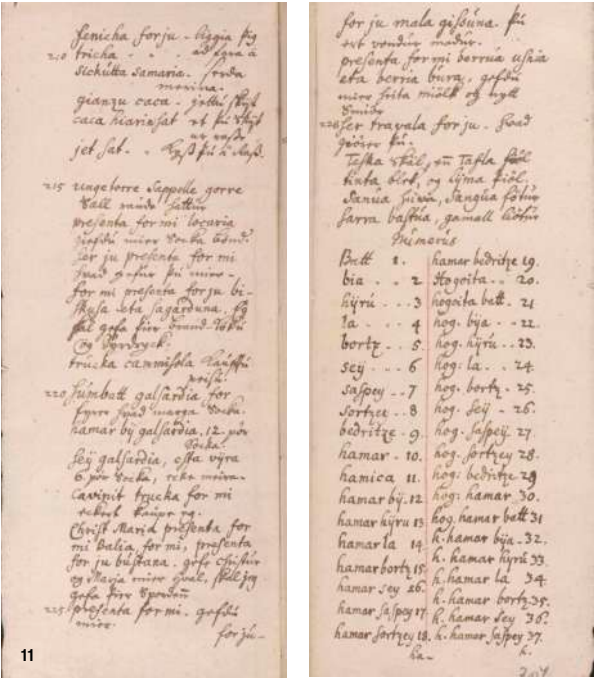 fenicha for ju - liggia þig
210 tricha - - - að fara á
Sickutta Samaria - serda
merina.
gianzu caca - jettu skijt
caca hiarinsat et þu skijt
ur rasse
jet sat - - kyss þu á Rass.
215 ungetorre Sappelle gorre
Vall raudr hattur
presenta for mi locaria
giefdu mier Socka bönd.
Ser ju presenta for mi
hvad gefur þu mier -
for mi presenta for ju bi-
skusa eta Sagarduna. Eg
skal gefa þier braud-köku
og Syrdryck.
trucka cammisola Kauptu
peisu.
220 Cumbatt galsardia for
fyrer hvad marga Socka.
hamar bij galsardia. 12. pör
Socka.
Seij galsardia, essta vijra
6. pör Socka, ecke meira-
Cavinit trucka for mi
eckert kaupe eg.
Christ Maria presenta for
mi Balia, for mi, presenta
for ju bustana. gefe christur
og Maria mier hval, skal jeg
gefa þier Spordenn
225 presenta for mi - gefdu
mier.
for ju -
11
for ju mala gissuna. þu
ert vondur madur.
presenta for mi berrua usnia
eta berria bura, gefdu
mier heita miölk og nytt
Smiör
226 Ser travala for ju - hvad
giörer þu.
tinta blek, og
Sarra bastua, gamall kiötur
Numerus
Batt 1.
bia - - 2
hijru - - - 3
la - - - 4
bortz - - 5.
sey - - - 6
saspey - - 7
Sortzey - - 8
bedritze - 9.
hamar - 10.
hamica 11.
hamar bij - 12
hamar hijru 13
hamar la 14.
hamar bortz 15.
hamar sey 16.
hamar saspey 17
hamar sortzey 18.
ha-
hamar bedritze 19.
Hogoita - - 20.
hogoita batt. 21
hog: bija - - 22.
hog: hijru - - 23.
hog: la - - 24.
hog: bortz - 25.
hog: sey - 26.
hog: saspey 27.
hog: sortzey 28.
hog: bedritze 29
hog: hamar 30.
hog. hamar batt 31
h. hamar bija - 32.
h. hamar hijru 33
h. hamar la 34
h. hamar bortz 35.
h. hamar sey 36.
h. hamar saspey 37.
h.